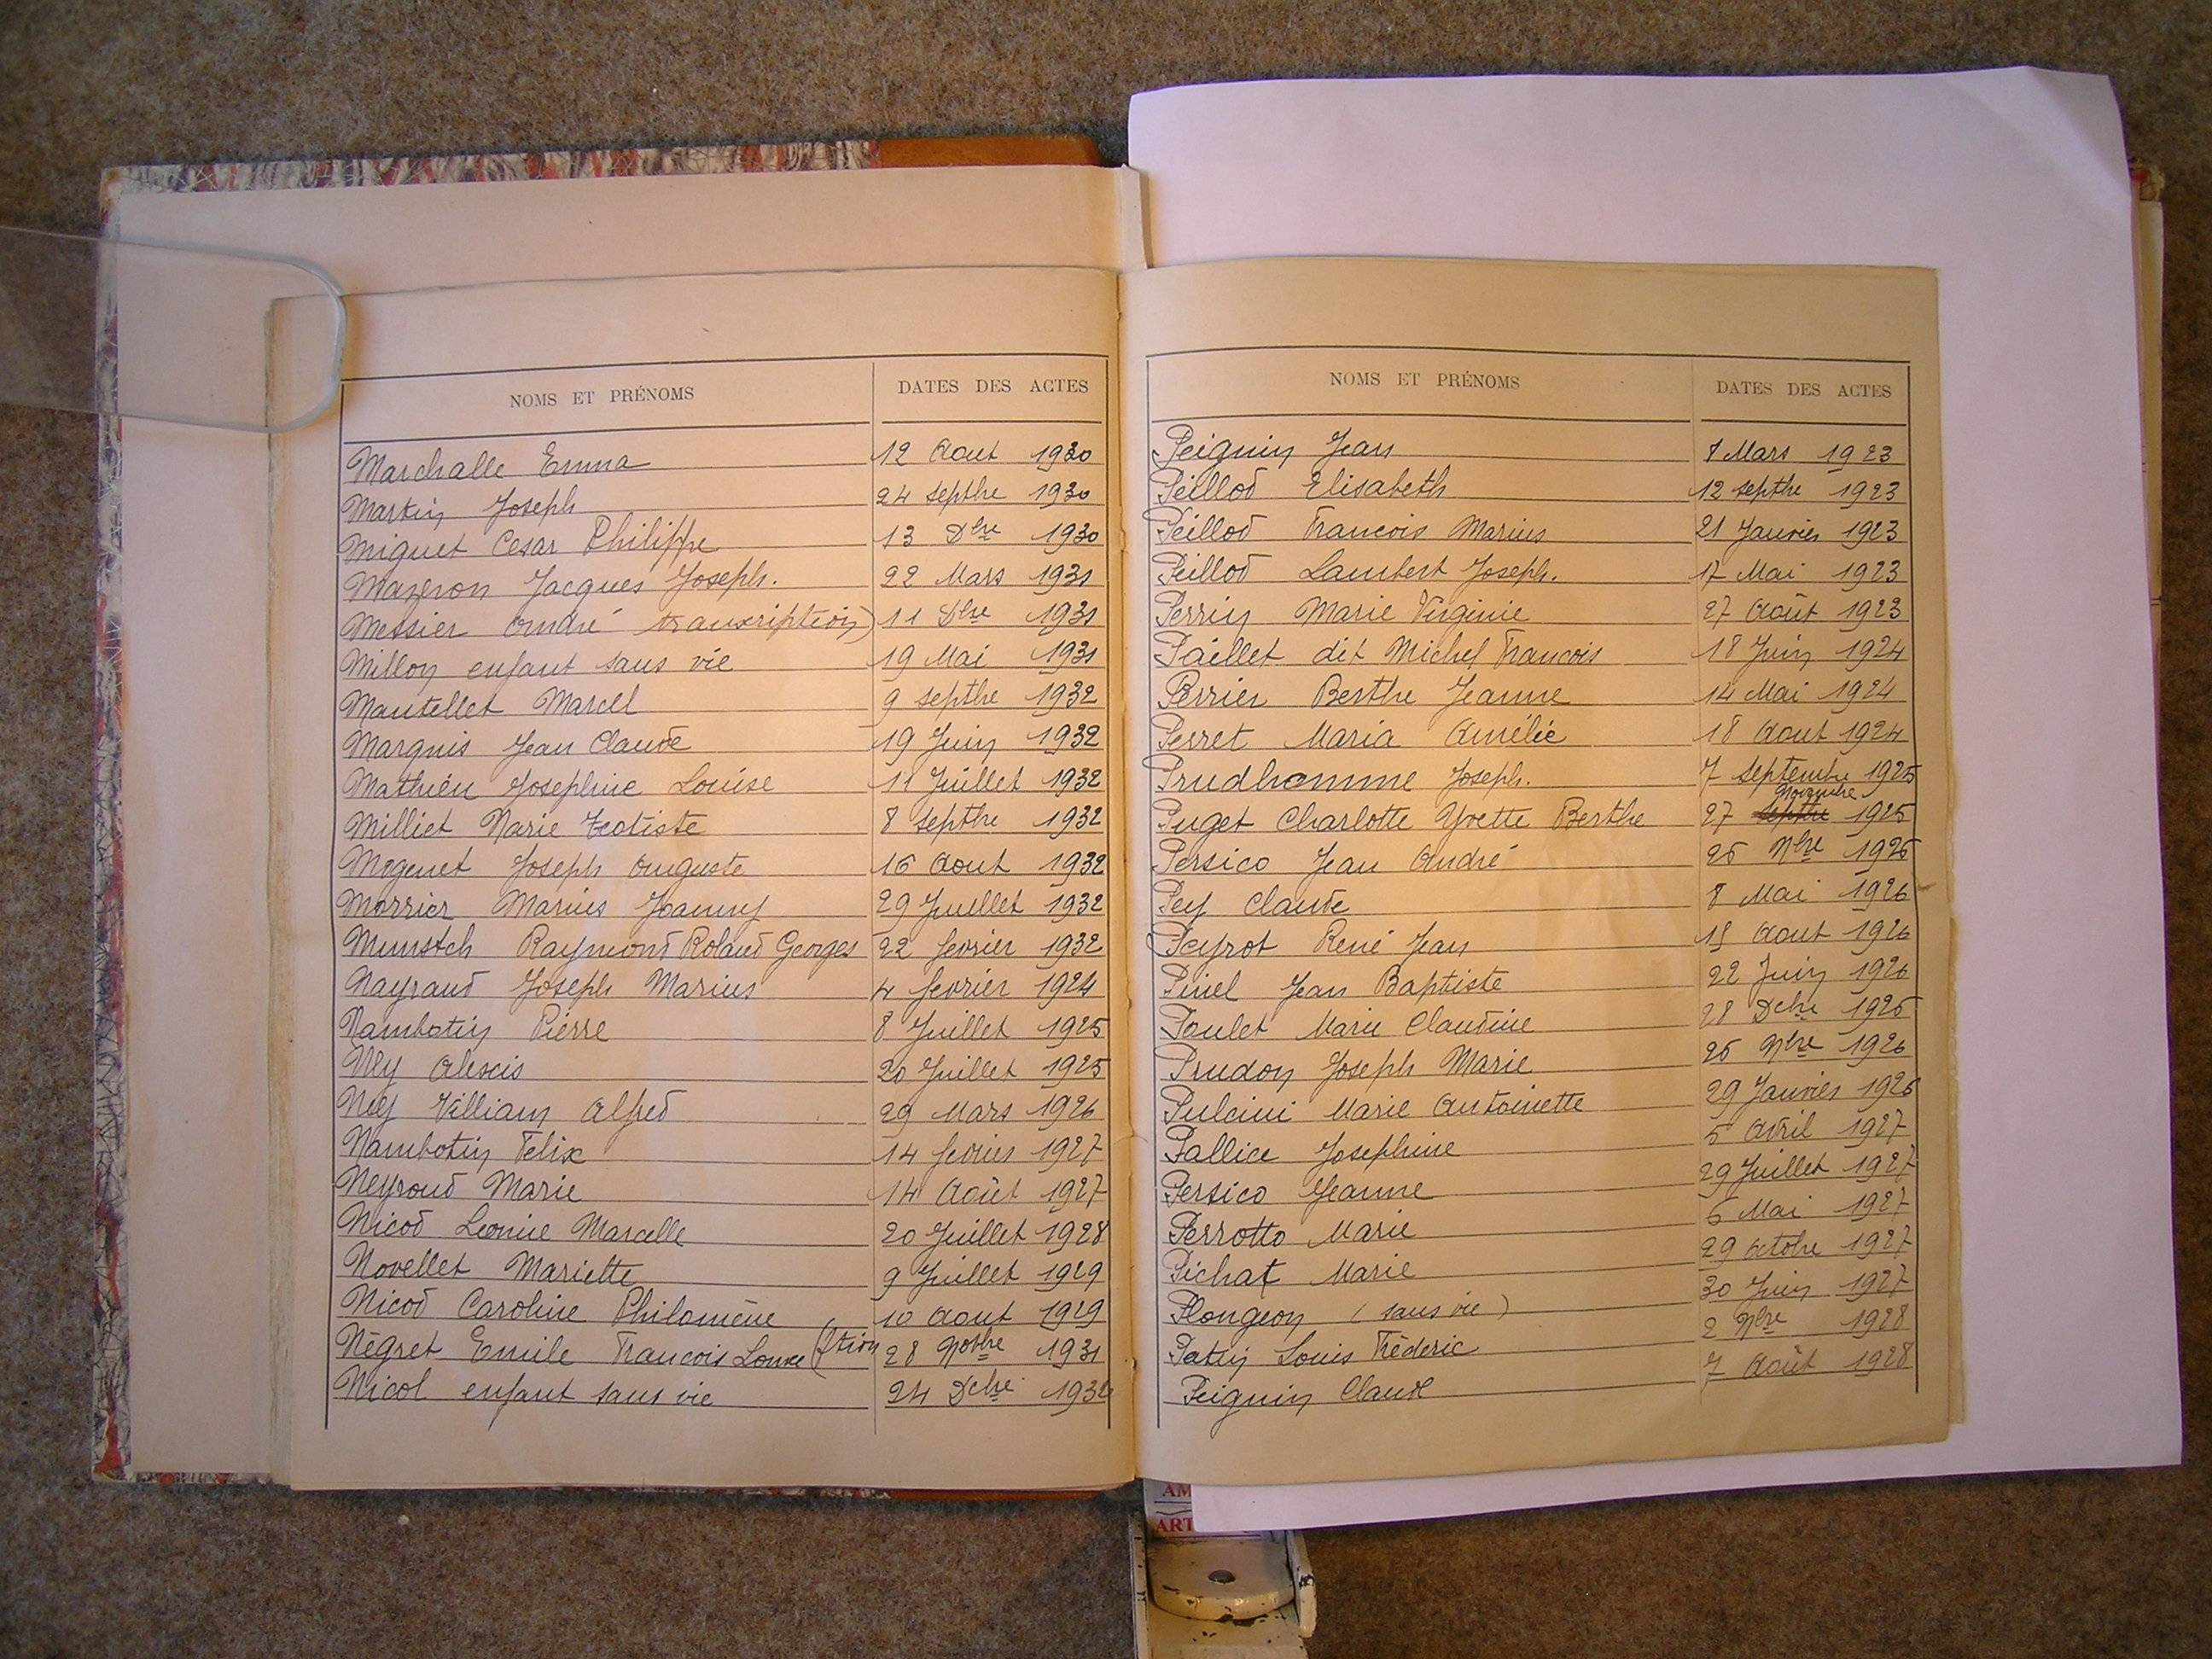 NOMS ET PRÉNOMS DATES DES ACTES
Marchalle Emma 12 Aout 1930
Martin Joseph 24 septbre 1930
Miguet Cesar Philippe 13 Dbre 1930
Mazeron Jacques Joseph. 22 Mars 1931
Messier André transcription) 11 Dbre 1931
Millon enfant sans vie 19 Mai 1931
Mantellet Marcel 9 septbre 1932
Marquis Jean Claude 19 Juin 1932
Mathieu Josephine Louise 11 Juillet 1932
Milliet Marie 8 septbre 1932
Mogenet Joseph Auguste 16 Aout 1932
Morrier Marius Joanny 29 Juillet 1932
Munstch Raymond Roland Georges 22 fevrier 1932
Nayraud Joseph Marius 4 fevrier 1924
Nambotin Pierre 8 Juillet 1925
Ney Alexis 20 Juillet 1925
Ney William Alfred 29 Mars 1926
Nambotin Felix 14 fevrier 1927
Neyroud Marie 14 Août 1927
Nicod Leonie Marcelle 20 Juillet 1928
Novellet Mariette 9 Juillet 1929
Nicod Caroline Philomène 10 Aout 1929
Négret Emile Francois 28 Novbre 1931
Nicol enfant sans vie 24 Dcbre
NOMS ET PRÉNOMS DATES DES ACTES
Peignin Jean Mars 1923
Peillod Elisabeth 12 septbre 1923
Peillod Francois Marius 21 Janvier 1923
Peillod Lambert Joseph. 17 Mai 1923
Perrin Marie Virginie 27 Août 1923
Paillet dit Michel Francois 18 Juin 1924
Perrier Berthe Jeanne 14 Mai 1924
Perret Maria Amélie 18 Aout 1924
Prudhomme Joseph. 7 septembre 1925
Novembre
Puget Charlotte Yvette Berthe 27 septbre 1925
Persico Jean André 25 Nbre 1925
Pey Claude 8 Mai 1926
Peyrot René Jean Aout 1926
Pinel Jean Baptiste 22 Juin 1926
Poulet Marie Claudine 28 Dcbre 1925
Prudon Joseph Marie 25 Nbre 1926
Pulcini Marie Antoinette 29 Janvier 1926
Pallice Josephine 5 Avril 1927
Persico Jeanne 29 Juillet 1927
Perrotto Marie 6 Mai 1927
Pichat Marie 29 octobre 1927
Plongeon (sans vie) 30 Juin 1927
Patin Louis Fréderic 2 Nbre 1928
Peignin Claude 7 Août 1928
AM
ART